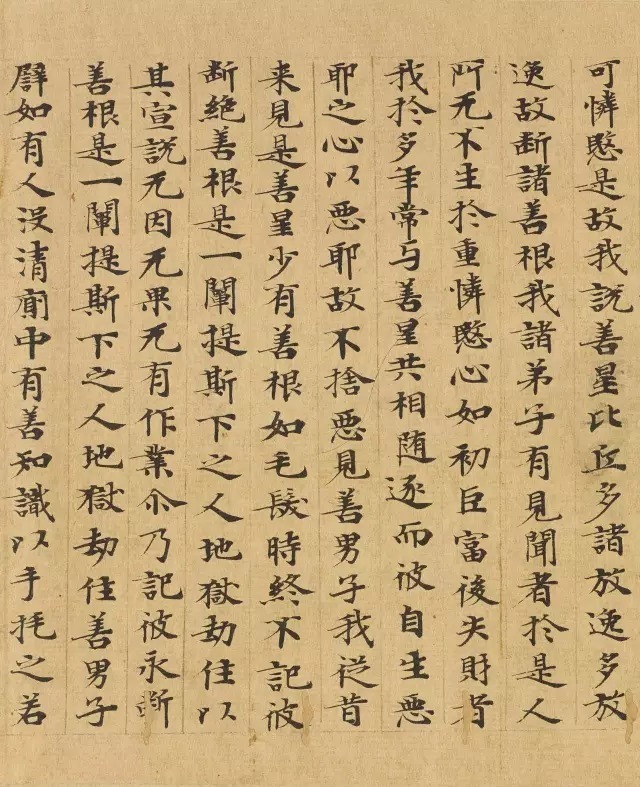 可憐愍是故我説善星比丘多諸放逸多放
逸故断諸善根我諸弟子有見聞者於是人
所无不生於重憐愍心如初巨富後失財者
我於多年常与善星共相随逐而彼自生惡
耶之心以惡耶故不捨惡見善男子我従昔
来見是善星少有善根如毛髮時終不記彼
断絶善根是一闡提斯下之人地獄劫住以
其宣説无因无果无有作業尒乃記彼永断
善根是一闡提斯下之人地獄劫住善男子
譬如有人没清廁中有善知識以手撓之若